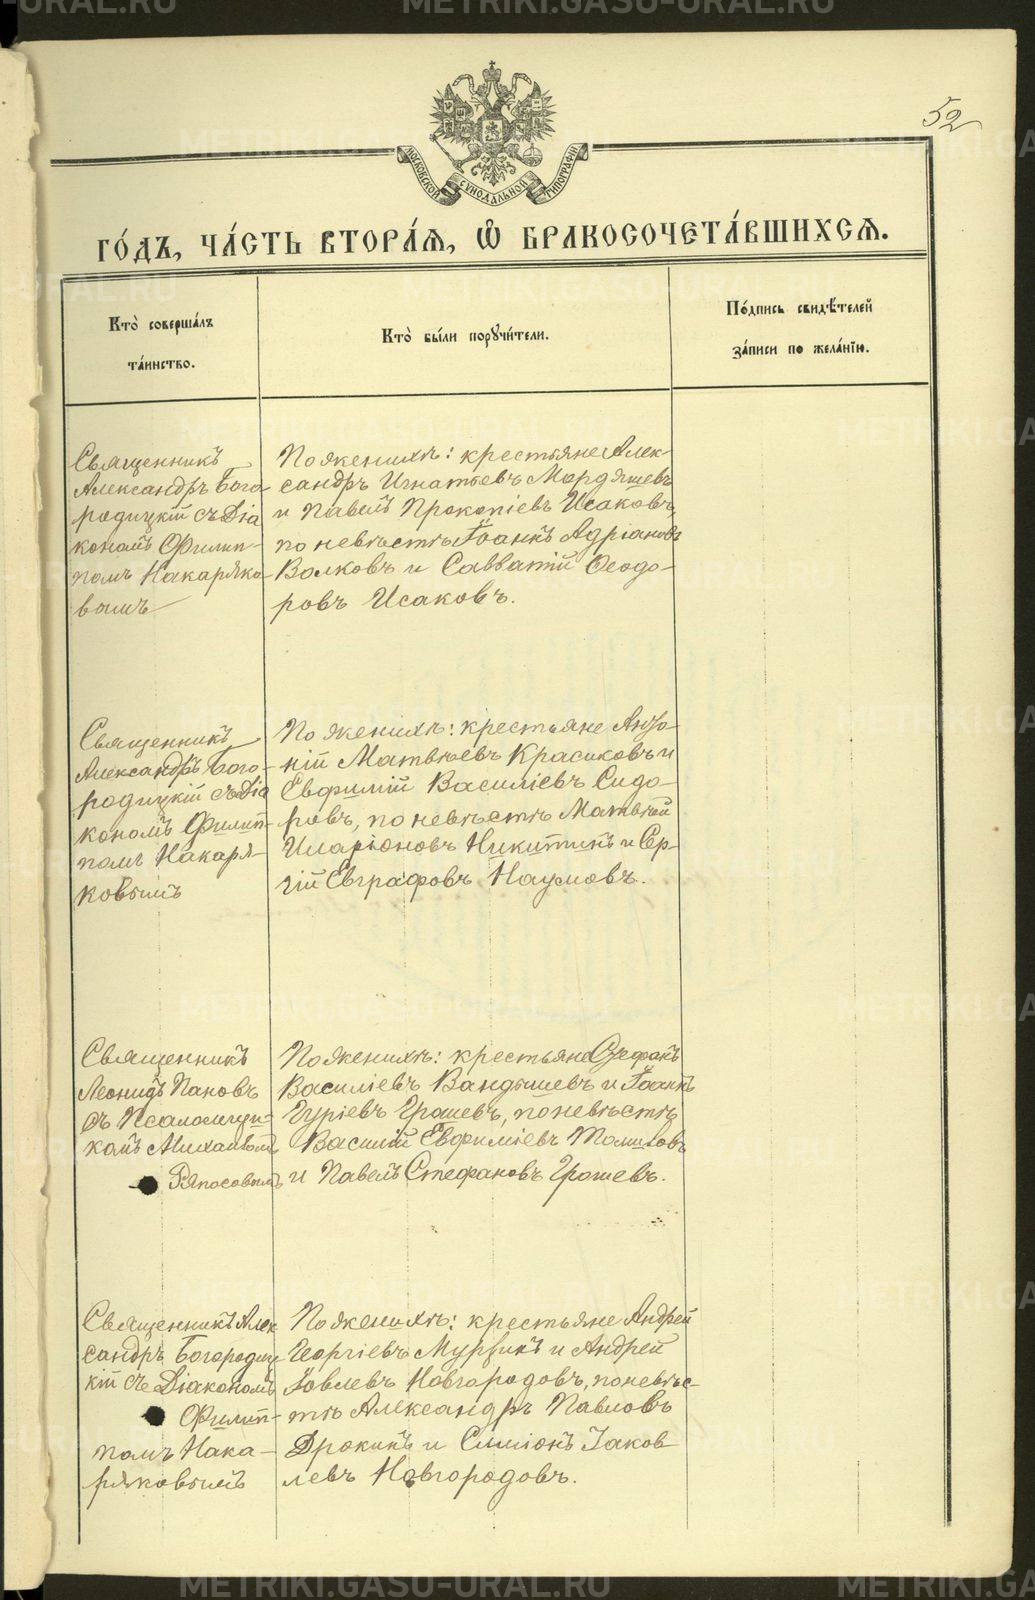 METRIKI.GASO-URAL.RU
52
МОСКОВСКОЙ СѴНОДАЛЬНОЙ ТИПОГРАФІИ
ГО́ДЪ, ЧА́СТЬ ВТОРА́Я, Ѽ БРАКОСОЧЕТА́ВШИХСѦ.
Кто̀ соверша́лъ
та́инство.
Кто̀ бы́ли порꙋчи́тели.
По́дпись свидѣ́телей
за́писи по жела́нїю.
Священникъ
Александръ Бого-
родицкій съ Діа
кономъ Филип-
помъ Накаряко-
вымъ
По женихѣ: крестьяне Алек-
сандръ Игнатьевъ Мордяшевъ
и Павелъ Прокопіевъ Исаковъ,
по невѣстѣ Іоаннъ Адріановъ
Волковъ и Савватій Ѳеодо-
ровъ Исаковъ.
Священникъ
Александръ Бого-
родицкій съ Діа
кономъ Филип-
помъ Накаря-
ковымъ
По женихѣ: крестьяне Анто-
ній Матвѣевъ Красиковъ и
Евфимій Василіевъ Сидо-
ровъ, по невѣстѣ Матвѣй
Иларіоновъ Никитинъ и Сер-
гій Евграфовъ Наумовъ.
Священникъ
Леонидъ Пановъ
съ Псаломщи-
комъ Михаиломъ
Ряпосовымъ
По женихѣ: крестьяне Стефанъ
Василіевъ Вандышевъ и Іоаннъ
Гуріевъ Грошевъ, по невѣстѣ
Василій Евфиміевъ Томиловъ
и Павелъ Стефановъ Грошевъ.
Священникъ Алек
сандръ Богородиц
кій съ Діакономъ
Филип-
помъ Нака-
ряковымъ
По женихѣ: крестьяне Андрей
Георгіевъ Мурзинъ и Андрей
Іовлевъ Новгородовъ, по невѣс-
тѣ Александръ Павловъ
Дрокинъ и Симеонъ Іаков
левъ Новгородовъ.